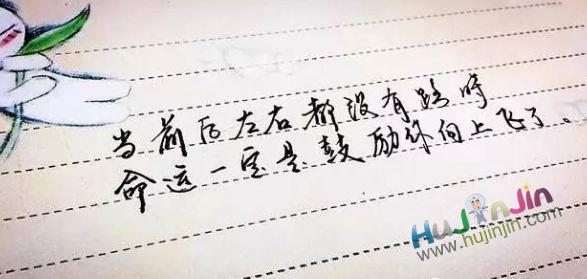 当前后左右都没有路时
命运一定是鼓励你向上飞了。
HuJinJin
www.hujinjin.com